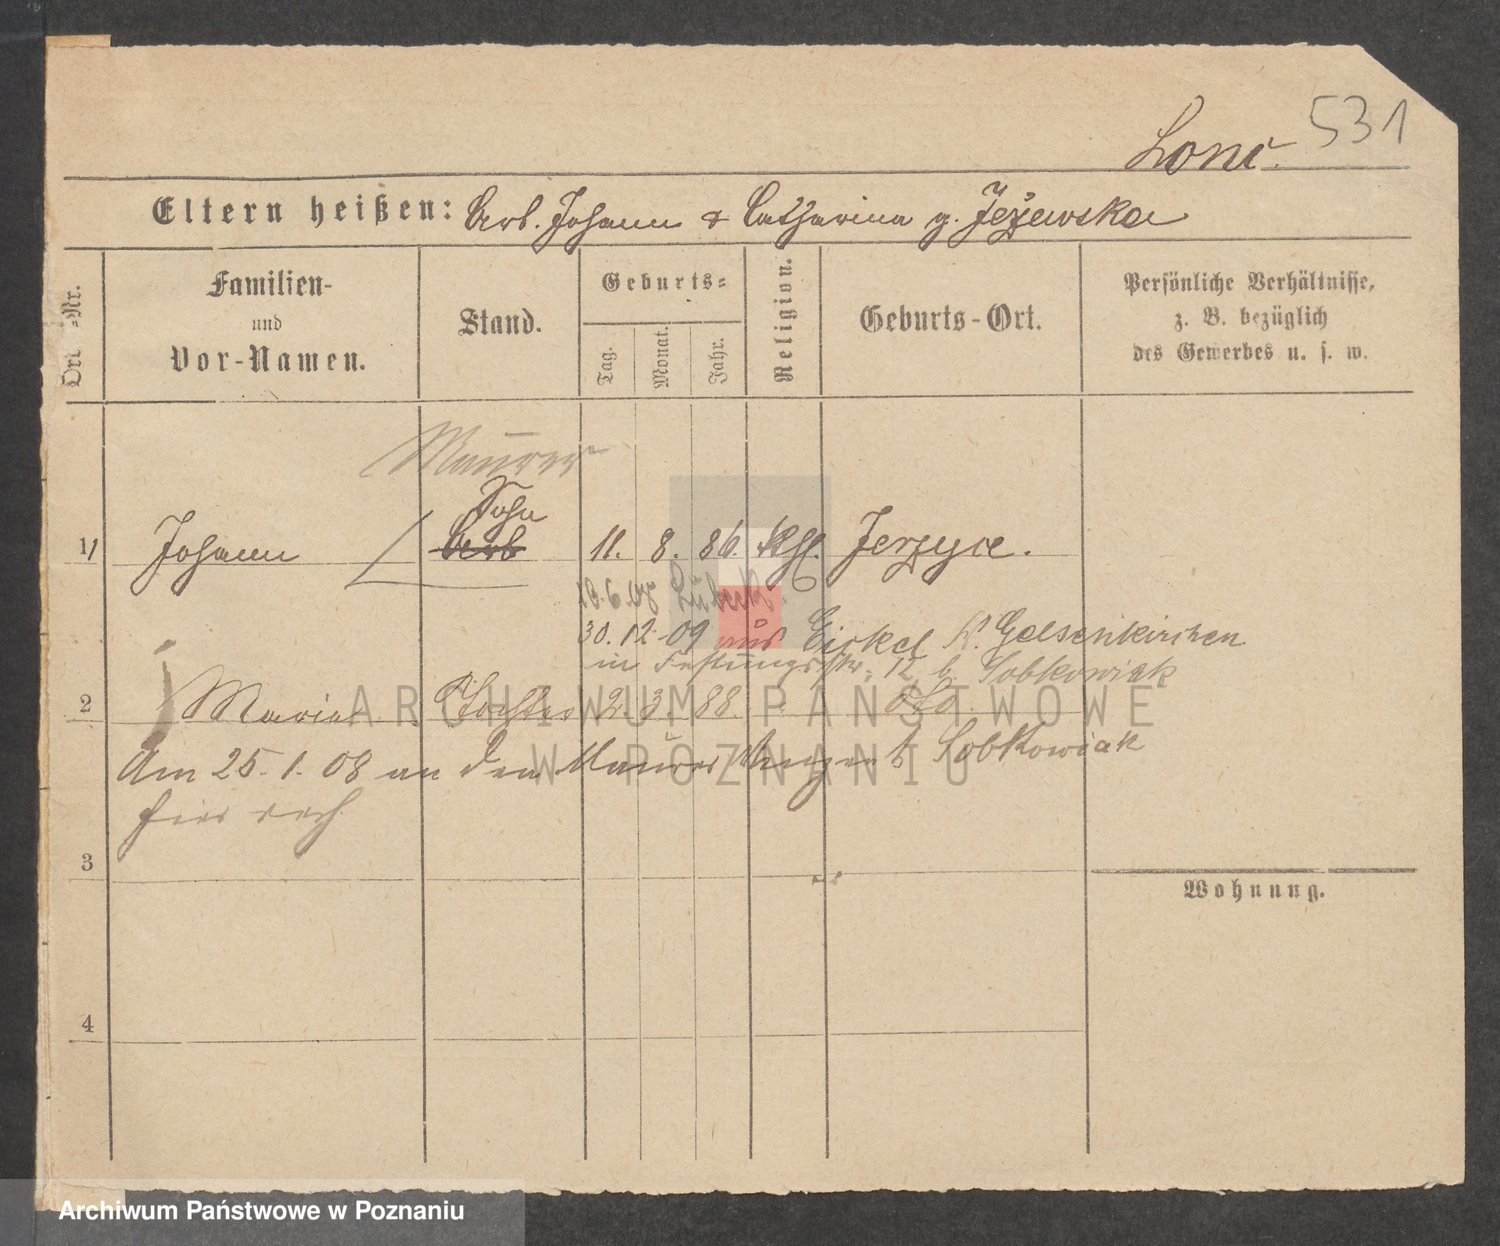 531
Lonc.
Eltern heißen: Arb. Johann & Catharina g. Jeżewska
Ort-Nr.
Familien-
und
Vor-Namen.
Stand.
Geburts-
Tag.
Monat.
Jahr.
Religion.
Geburts-Ort.
Persönliche Verhältnisse,
z. B. bezüglich
des Gewerbes u. s. w.
Maurer
Sohn
1/ Johann Arb 11. 8. 86. Kth. Jerzyce.
30. 12. 09 aus Eickel K. Gelsenkirchen
in Festungsstr. 12 b. Sobkowiak
2 Maria Tochter 2. 3. 88. dto.
Am 25. 1. 08 an den Maurer Sobkowiak
hier verh.
3
Wohnung.
4
ARCHIWUM PAŃSTWOWE
W POZNANIU
Archiwum Państwowe w Poznaniu